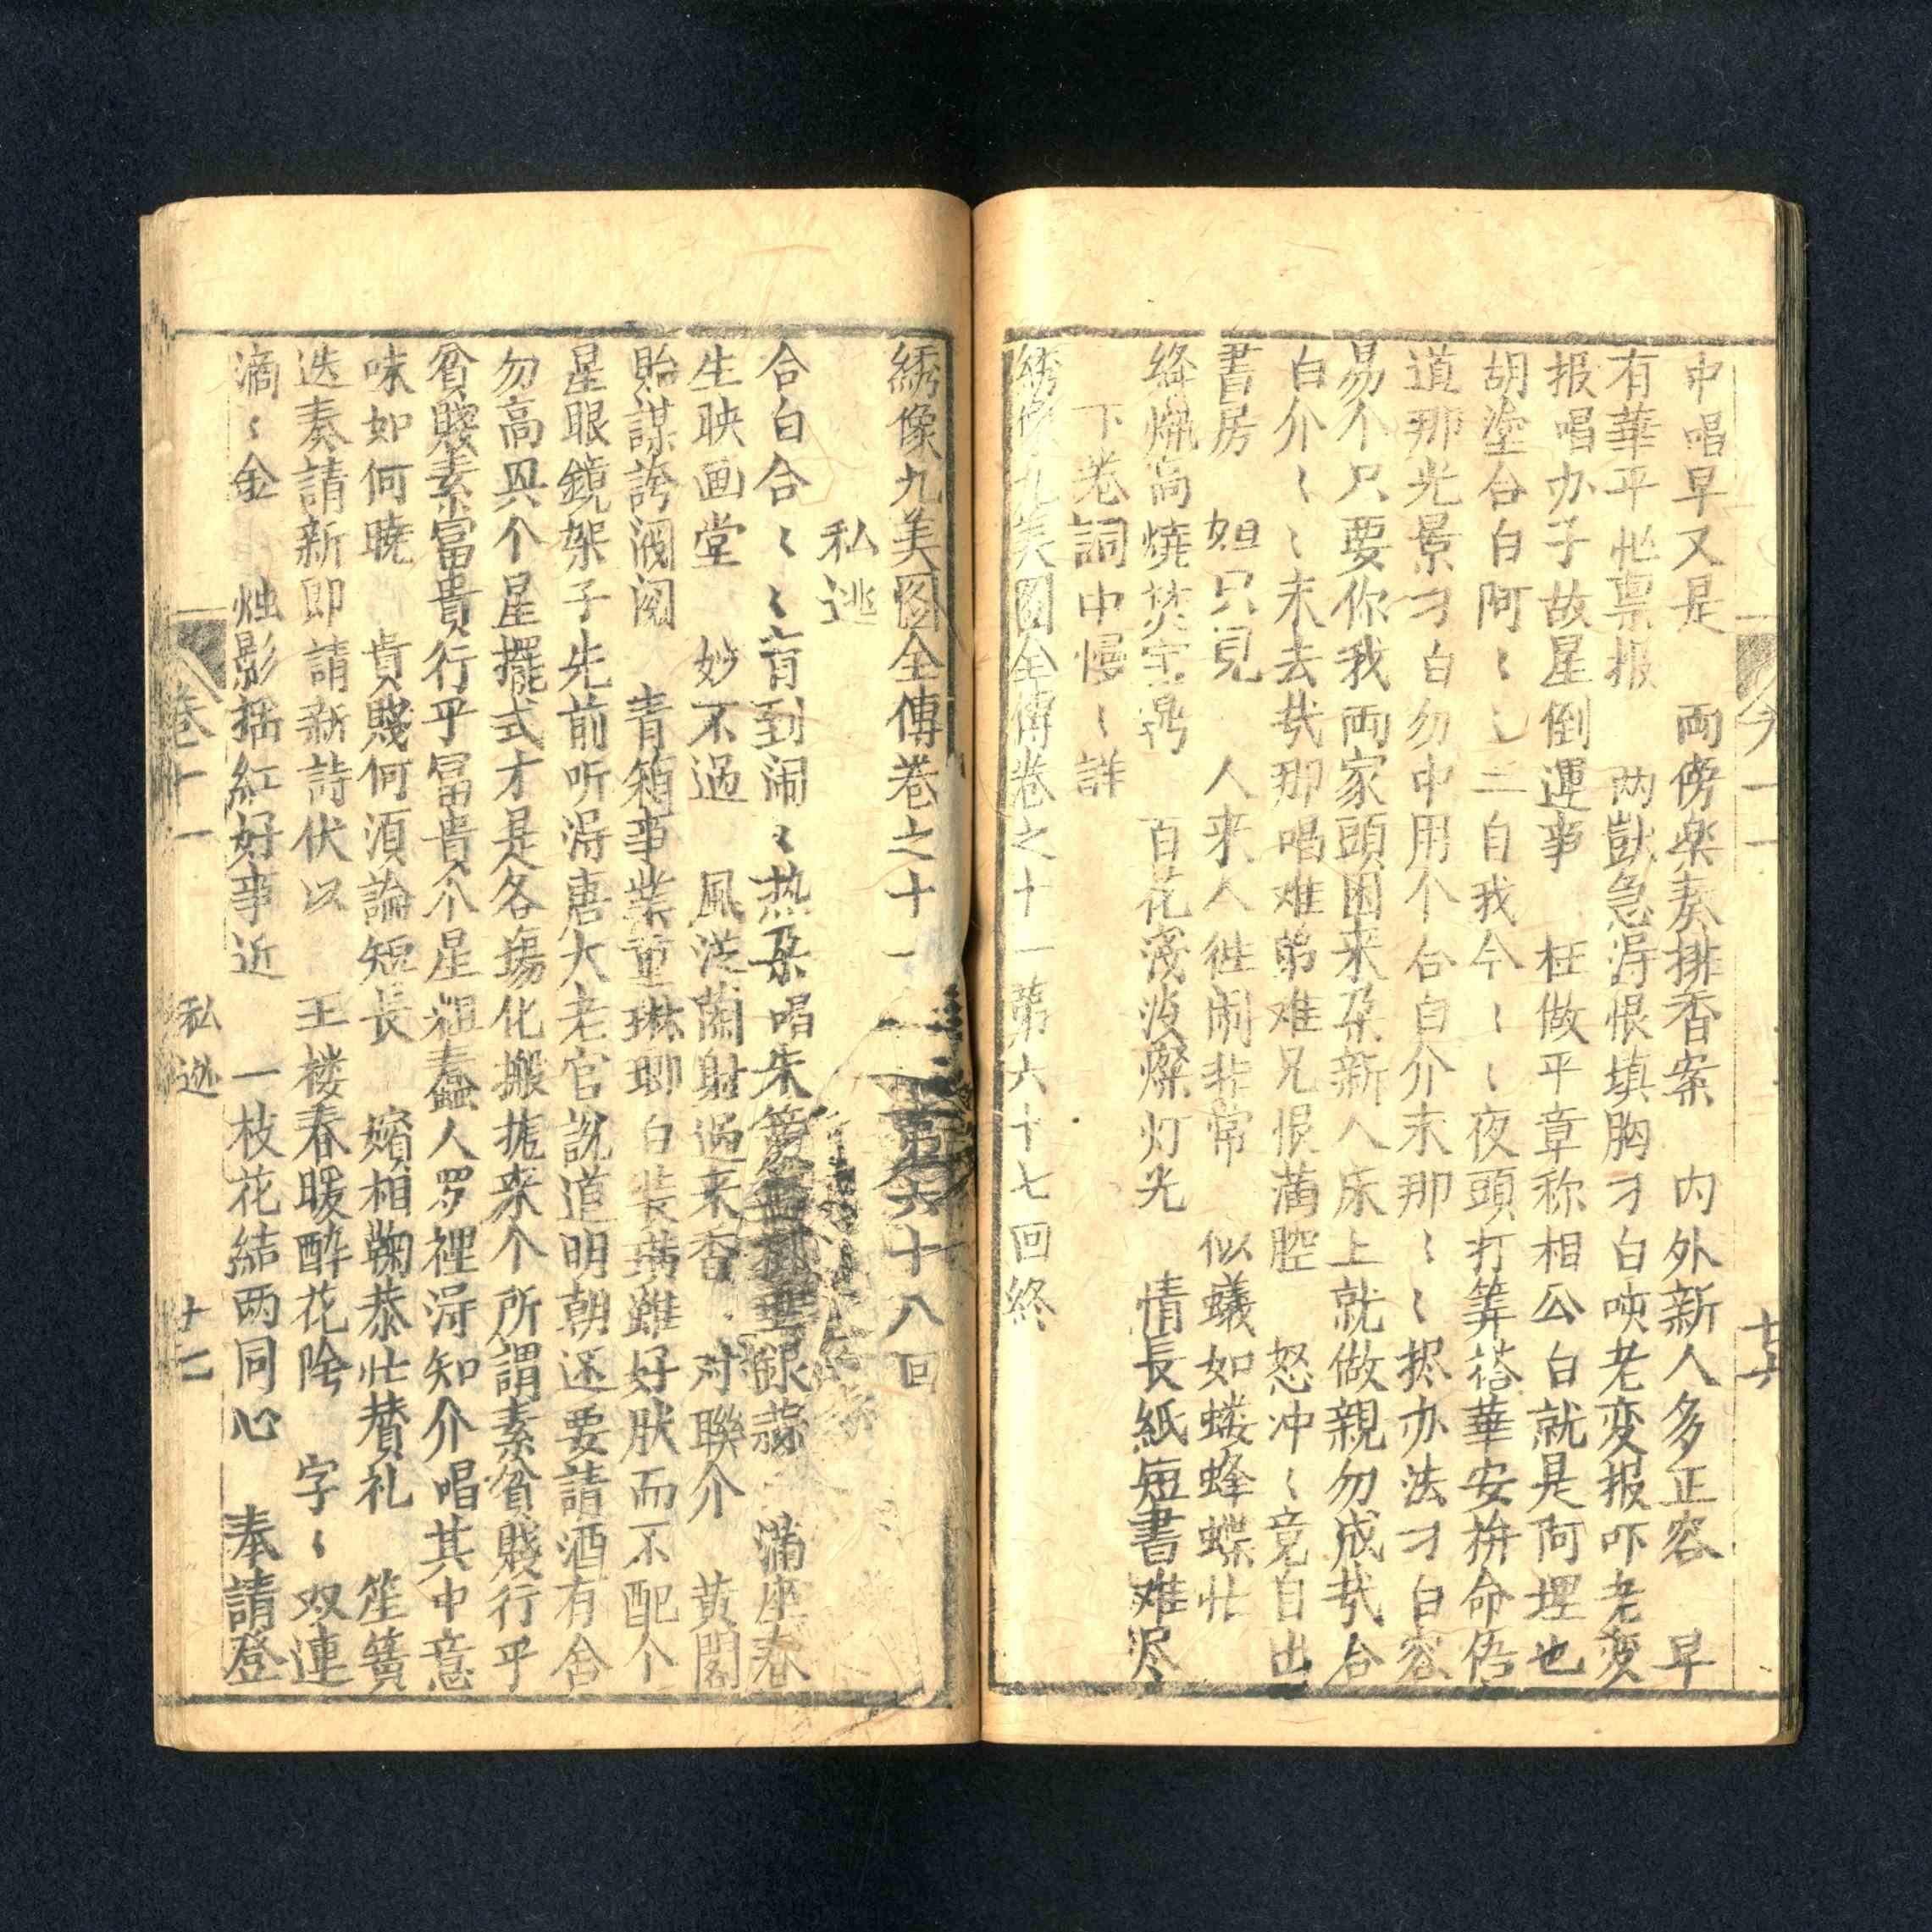 中唱早又是 両傍楽奏排香案 内外新人多正容 早
有華平忙禀报 两獃急淂恨填胸 刁白唊老变报吓老变
报唱办子故星倒運事 枉做平章称相公白就是阿埋也
胡塗合白阿〻 自我今〻〻夜頭打筭搭華安拚命
道那光景刁白勿中用个合白介末那〻〻掞办法刁白容
易个只要你我両家頭困来朶新人床上就做親勿成哉合
白介〻〻末去哉那唱难弟难兄恨满腔 怒冲〻竟自出
書房 妲只見 人来人徃闹非常 似蟻如蝼蜂蝶忙
絳烛高燒焚宝鼎 百花凌波燦灯光 情長紙短書难尽
下卷詞中慢〻詳
綉像九美图全傳卷之十一第六十七回終
綉像九美图全傳卷之十一 第六十八回
私逃
合白合〻〻育到闹〻热朶唱朱 銀 满座春
生映画堂 妙不過 風送蘭射過来香 对聯介 黄閣
貽謀誇溷阅 青箱事業重琳瑯白装璜雖好肰而不配个
星眼鏡架子先前听淂唐大老官説道明朝还要請酒有舍
勿高興个星擺式才是各塲化搬搃来个所謂素貧賤行乎
貧賤素富貴行乎富貴个星粗蠢人罗裡淂知介唱其中意
味如何曉 貴賤何湏論短長 嬪相鞠恭忙賛礼 笙簧
迭奏請新郎請新詩伏以 王楼春暖酔花陰 字〻双連
滴〻金 烛影揺紅好事近 一枝花結两同心 奉請登
卷十一 私逃 十七